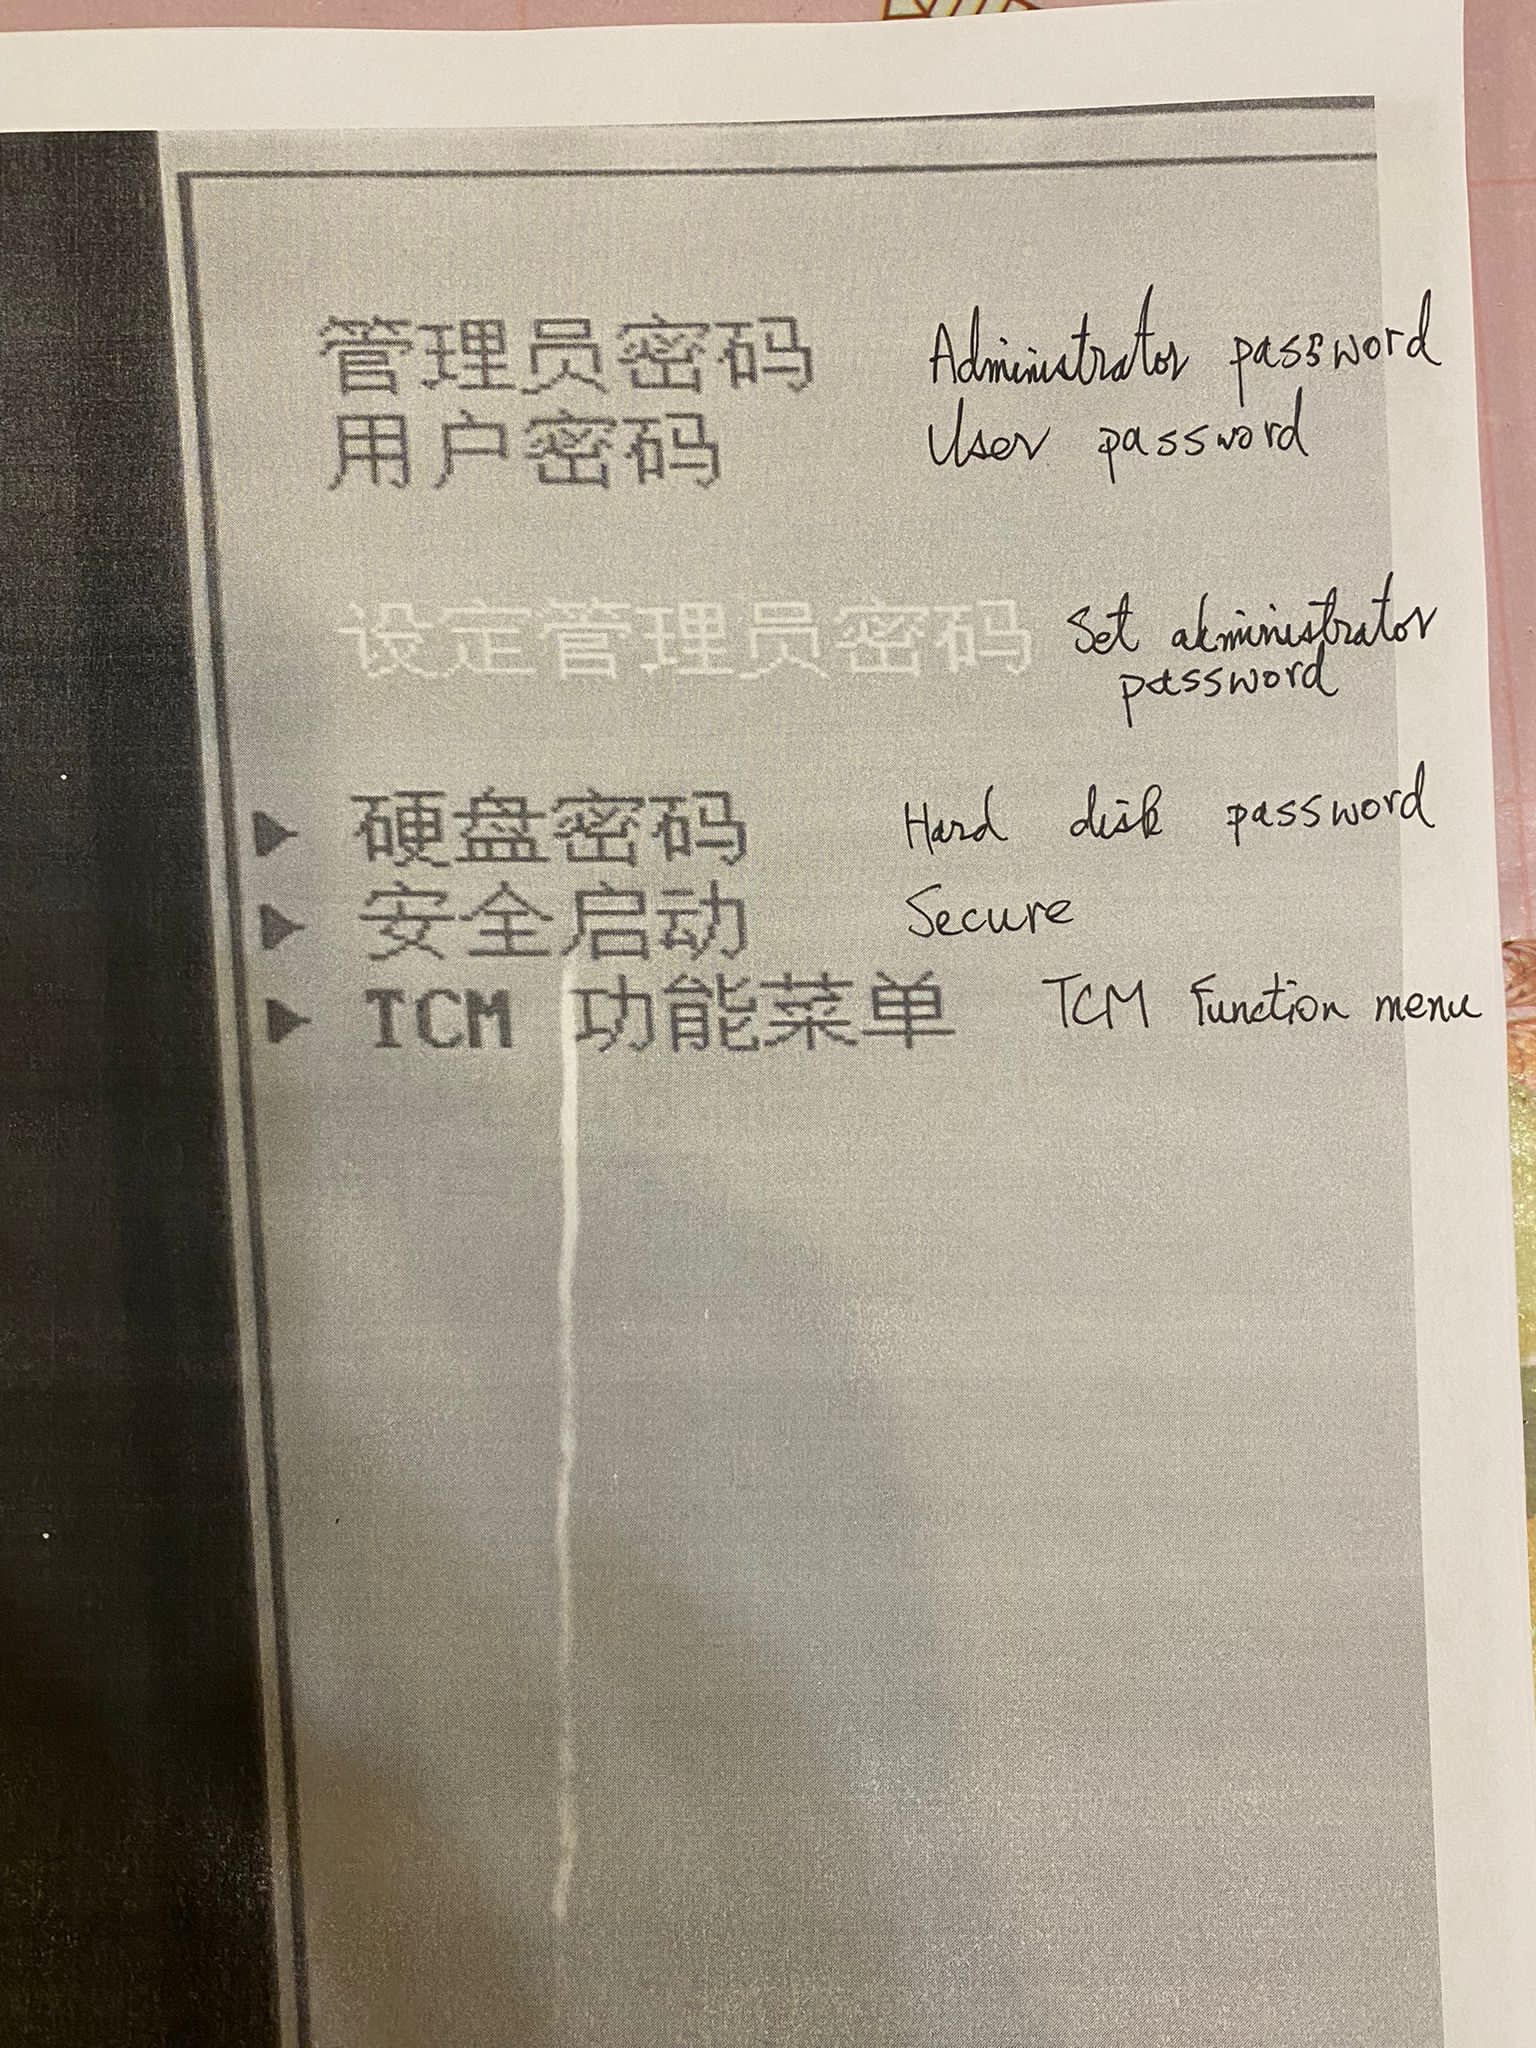 管理员密码 Administrator password
用户密码 User password
设定管理员密码 Set administrator
password
硬盘密码 Hard disk password
安全启动 Secure
TCM 功能菜单 TCM Function menu